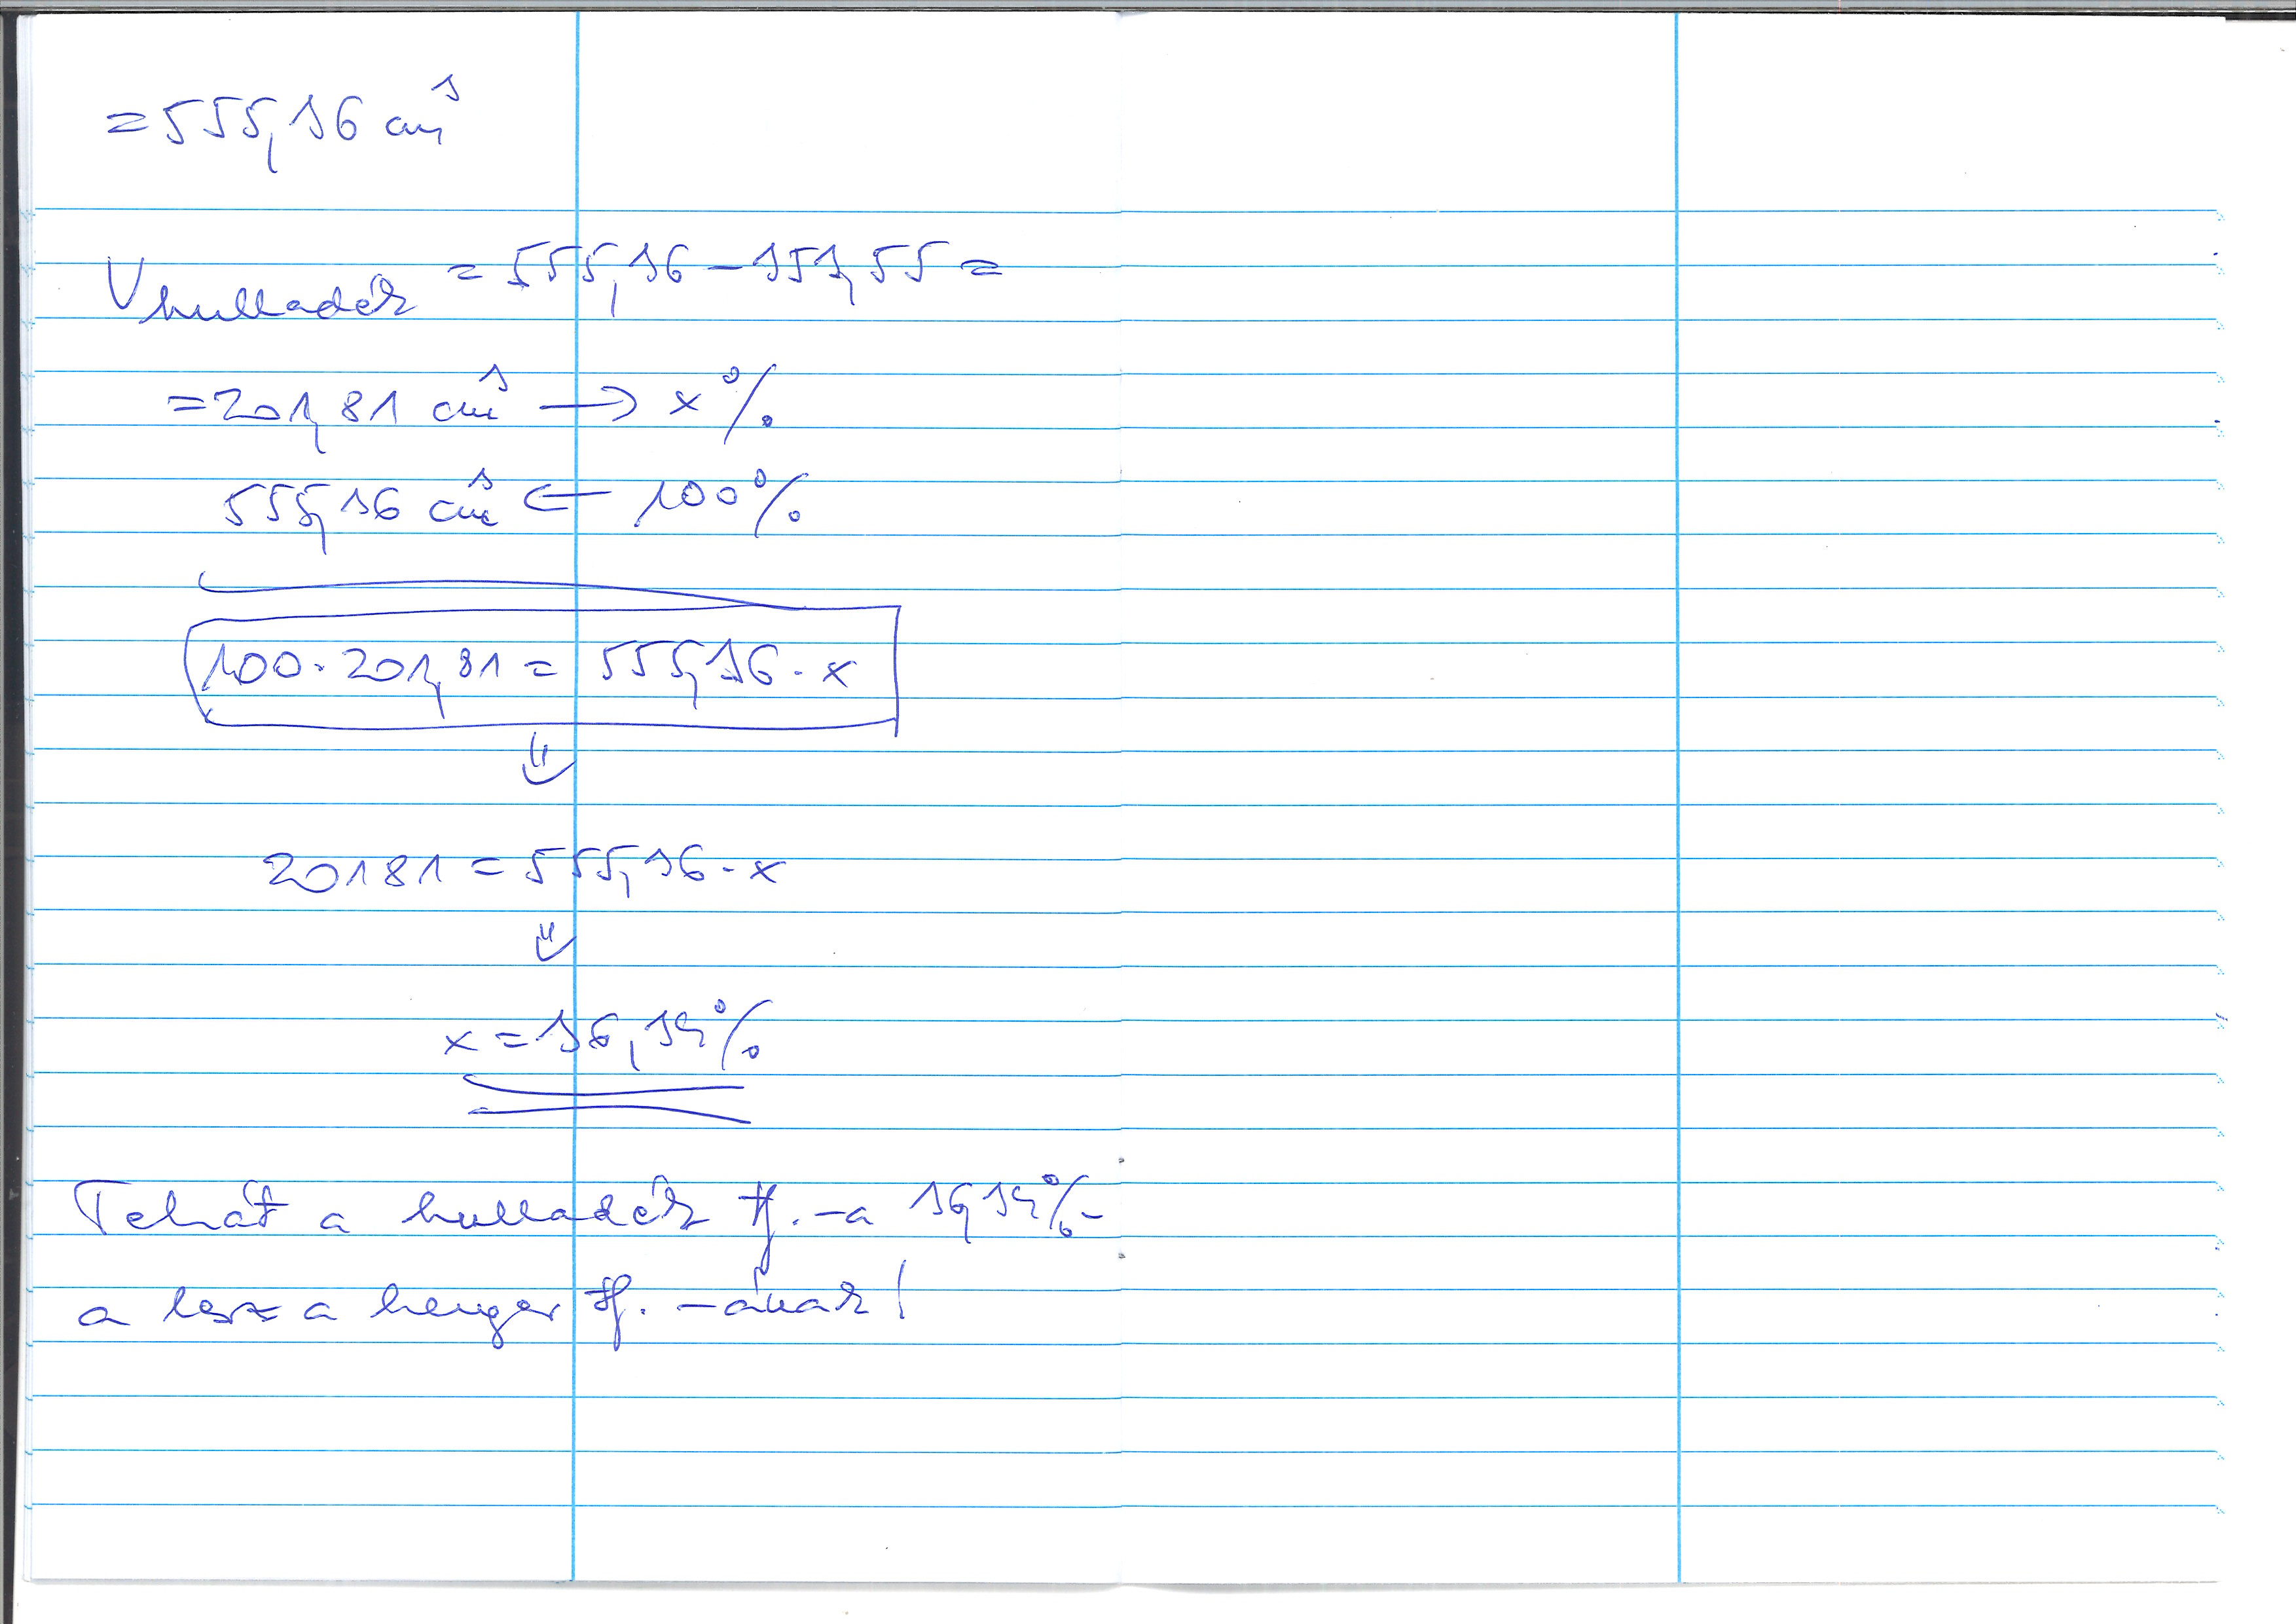 = 555,36 cm³
V hulladék = 555,36 − 353,55 =
= 201,81 cm³ → x%
555,36 cm³ ← 100%
100 · 201,81 = 555,36 · x
⇓
20181 = 555,36 · x
⇓
x = 36,34%
Tehát a hulladék tf. -a 36,34%-
a lesz a henger tf. -ának!